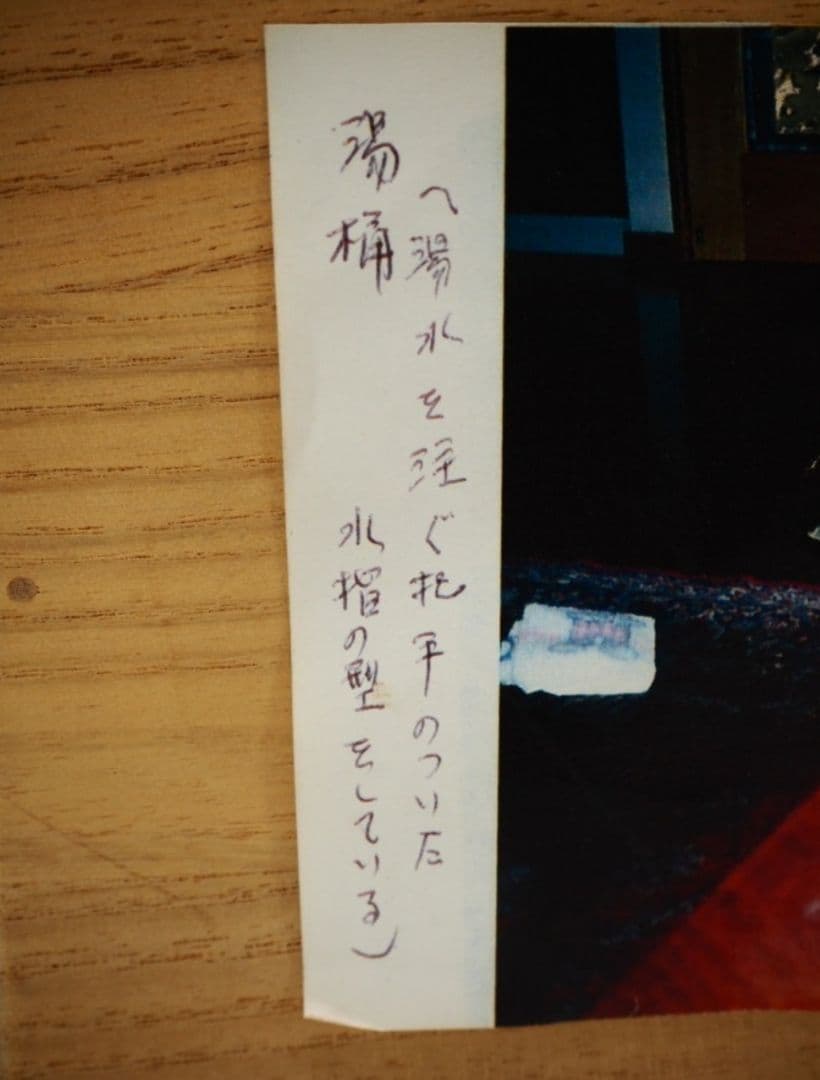 湯桶
(湯水を注ぐ把手のついた
の型をしている)